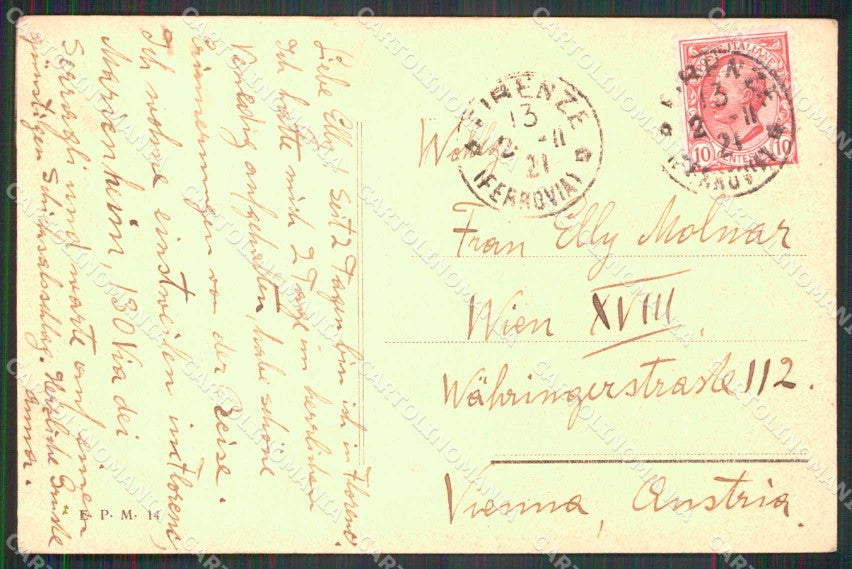 Liebe Elly! Seit 2 Tagen bin ich in Florenz.
Ich hatte mich 2 Tage im herrlichen
Venedig aufgehalten, habe schöne
Erinnerungen von der Reise.
Ich wohne einstweilen in Florenz,
Marienheim, 130 Via dei
Serragli und warte auf einen
günstigen Schicksalsschlag. Herzliche Grüße
Anna.
E. P. M. 14
FIRENZE
13
2-11
21
(FERROVIA)
POSTE ITALIANE
10 CENTESIMI 10
FIRENZE
13
2-11
21
(FERROVIA)
Frau Elly Molnar
Wien XVIII.
Währingerstraße 112.
Vienna, Austria.
CARTOLINOMANIA